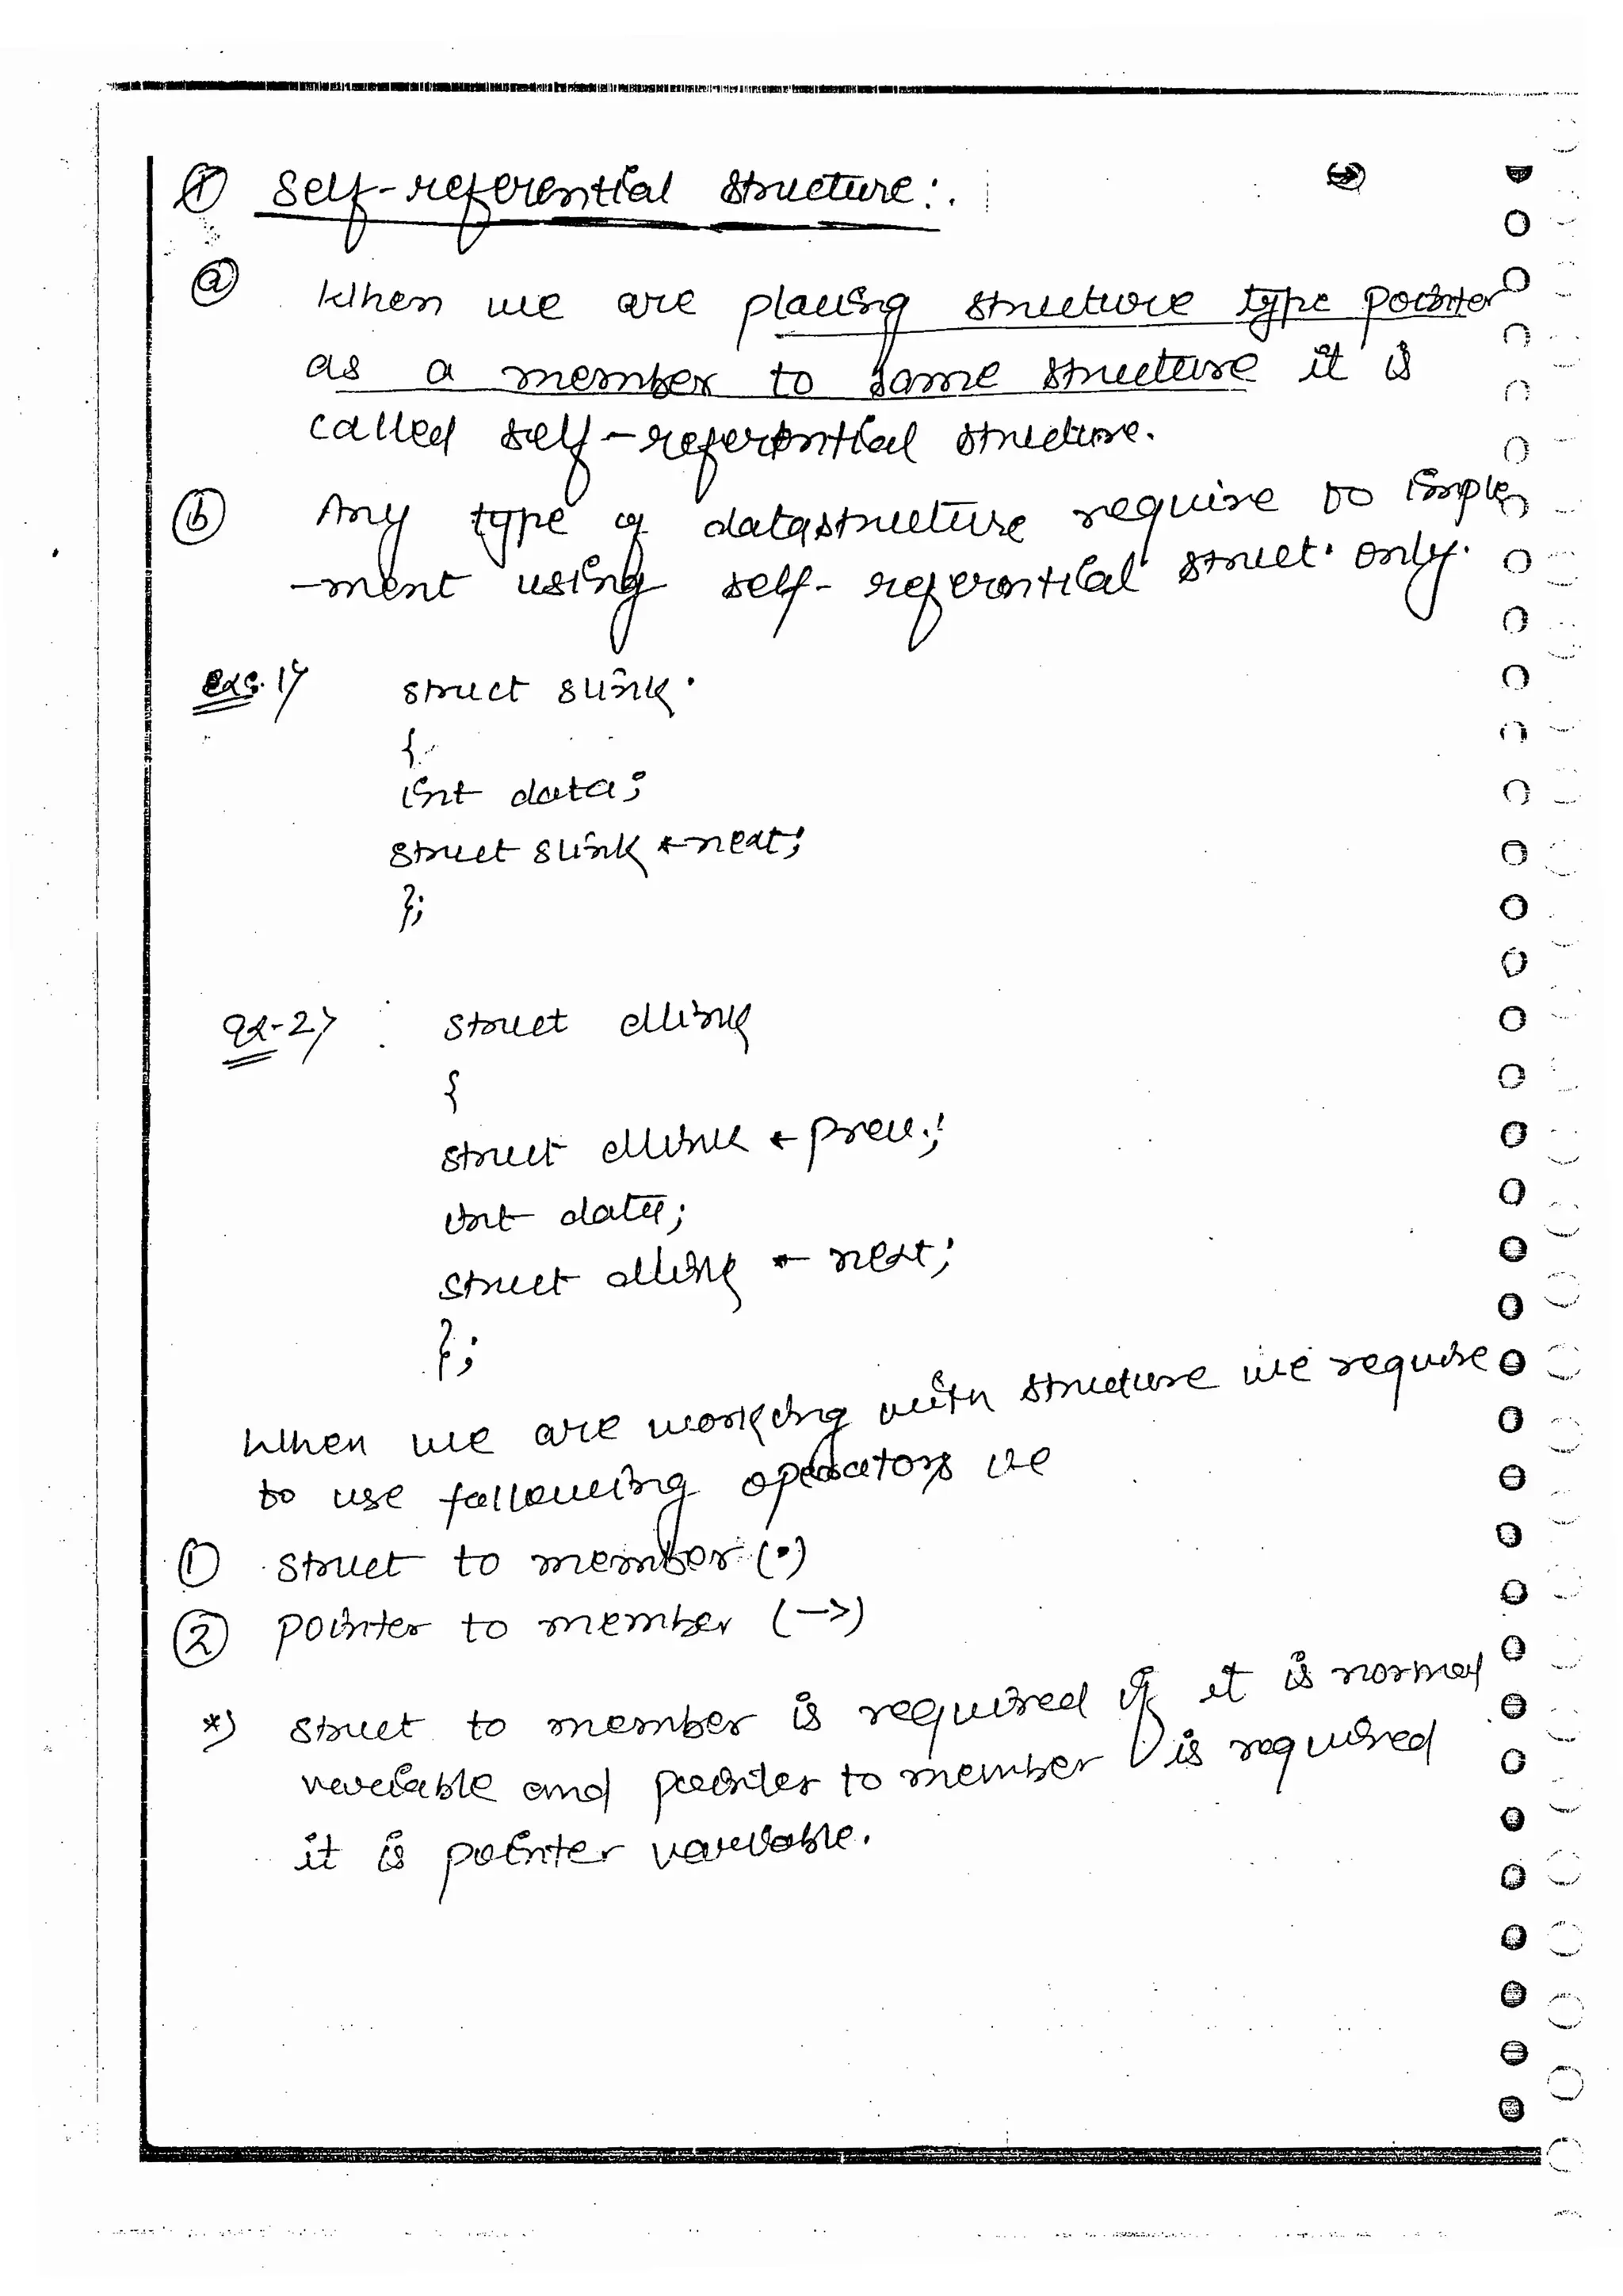 ① Self-referential structure:.
ⓐ When we are placing structure type pointer
as a member to same structure it is
called self-referential structure.
ⓑ Any type of datastructure require to imple
-ment using self-referential struct. only.
exe.1>
struct slink
{
int data;
struct slink *next;
};
ex-2>
struct dlink
{
struct dlink *prev;
int data;
struct dlink *next;
};
When we are working with structure we require
to use following operators ie
① struct to member (•)
② pointer to member (->)
*) struct to member is required if it is normal
variable and pointer to member is required
it is pointer variable.